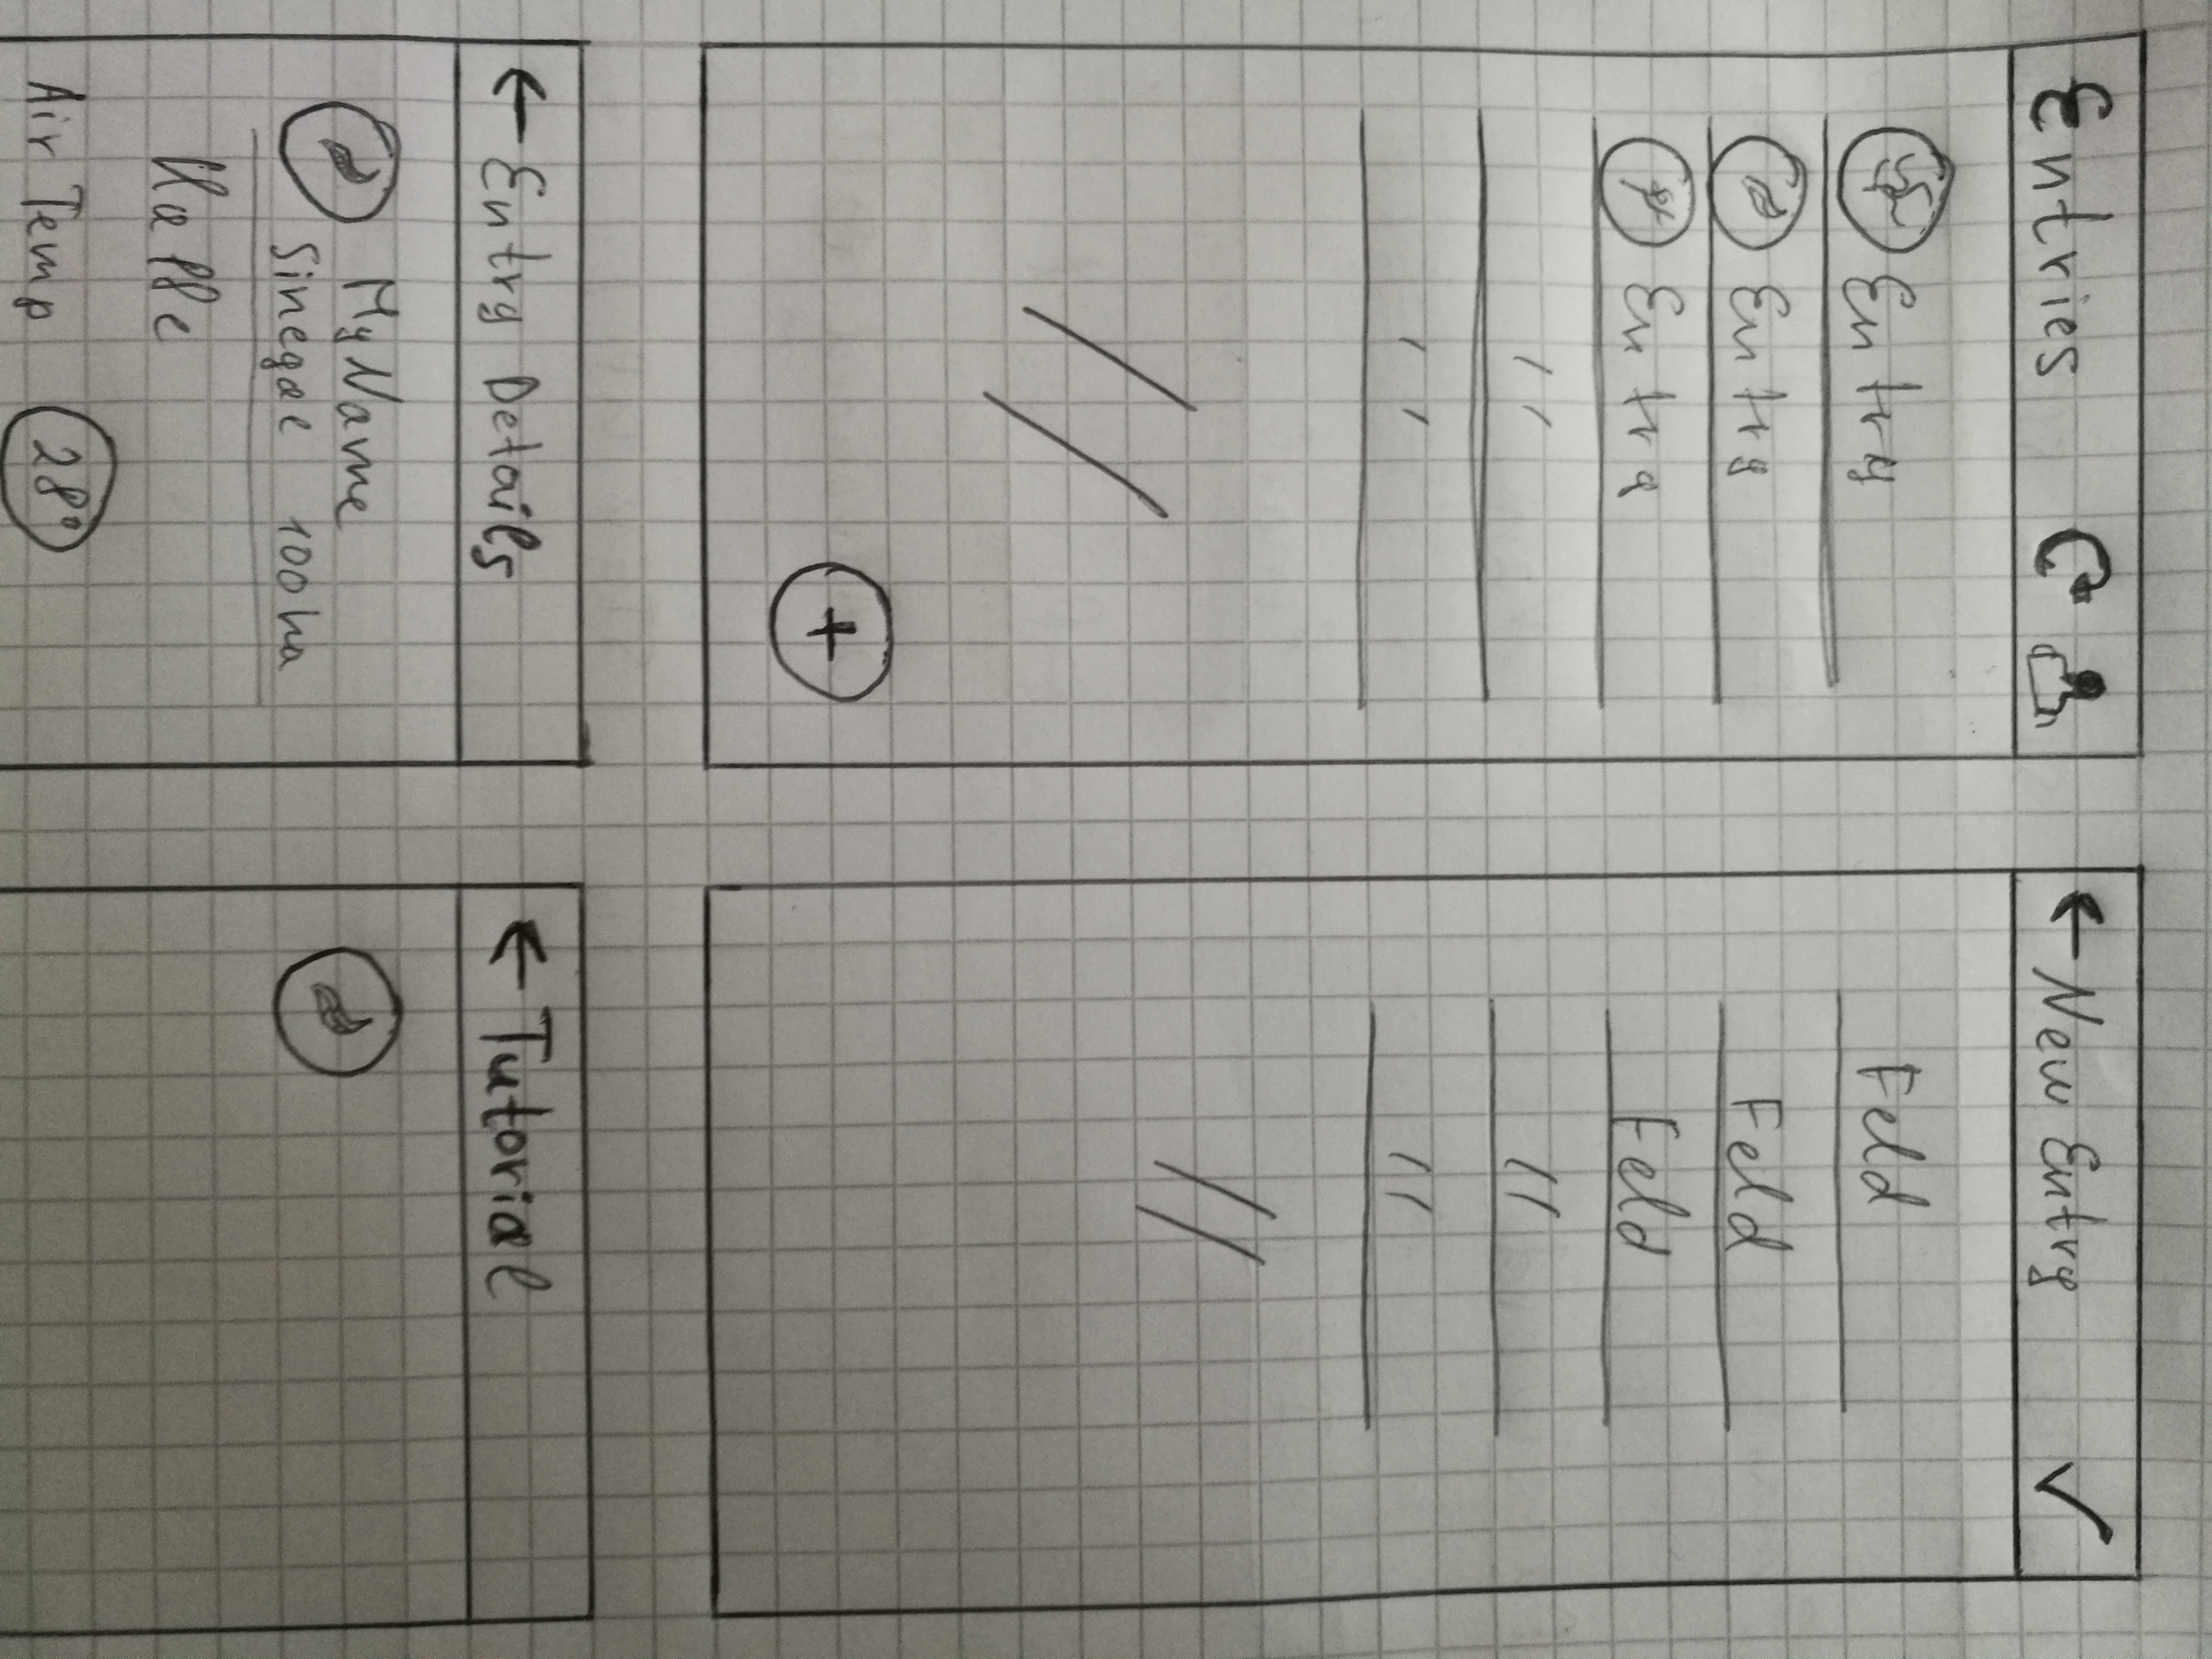 Entries
Entry
Entry
Entry
" 
"
+
← New Entry ✓
Feld
Feld
Feld
"
"
← Entry Details
My Name
Sinegal 100ha
Air Temp 28°
← Tutorial